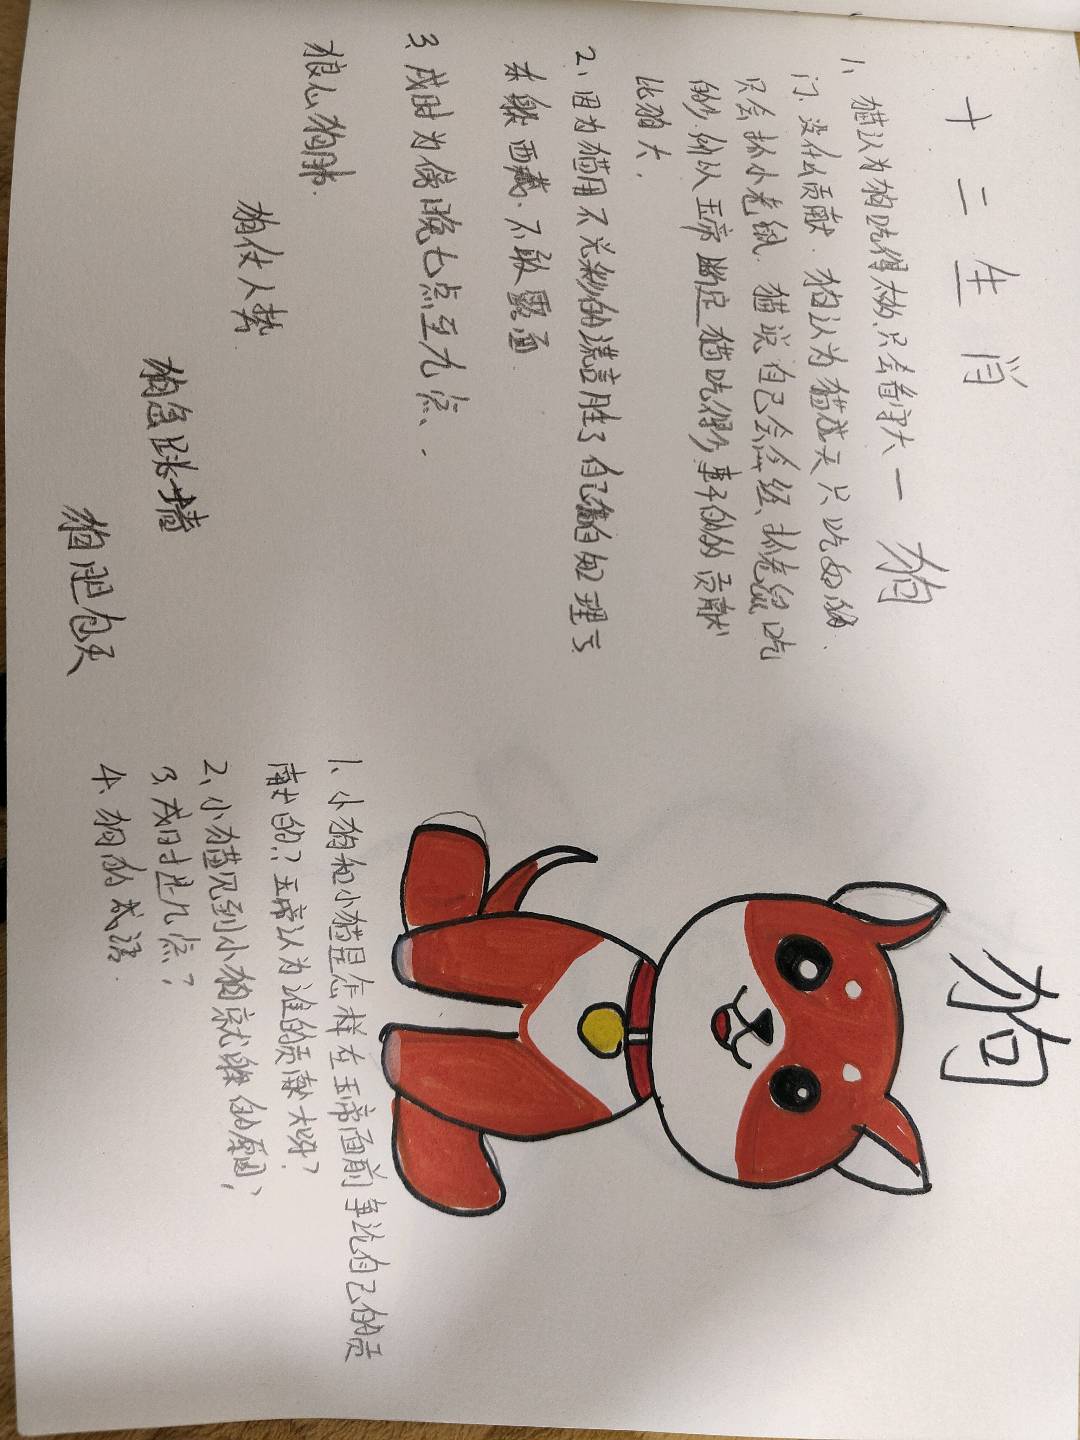 十二生肖
一狗
1、猫认为狗吃得太多,只会看守大
门,没什么贡献.狗认为猫每天只吃好的
只会抓小老鼠.猫说自己会念经,抓老鼠,吃
的少.所以玉帝断定猫吃得少事干的的贡献
比狗大、
2、因为猫用不光彩的谎言胜了自己猫自知理亏
东躲西藏.不敢露面
3、戌时为傍晚七点至九点、
狼心狗肺.
狗仗人势.
狗急跳墙
狗胆包天
狗
1、小狗和小猫是怎样在玉帝面前争论自己的贡
献的?玉帝认为谁的贡献大呀?
2、小猫见到小狗就躲的原因、
3、戌时是几点?
4、狗的成语.